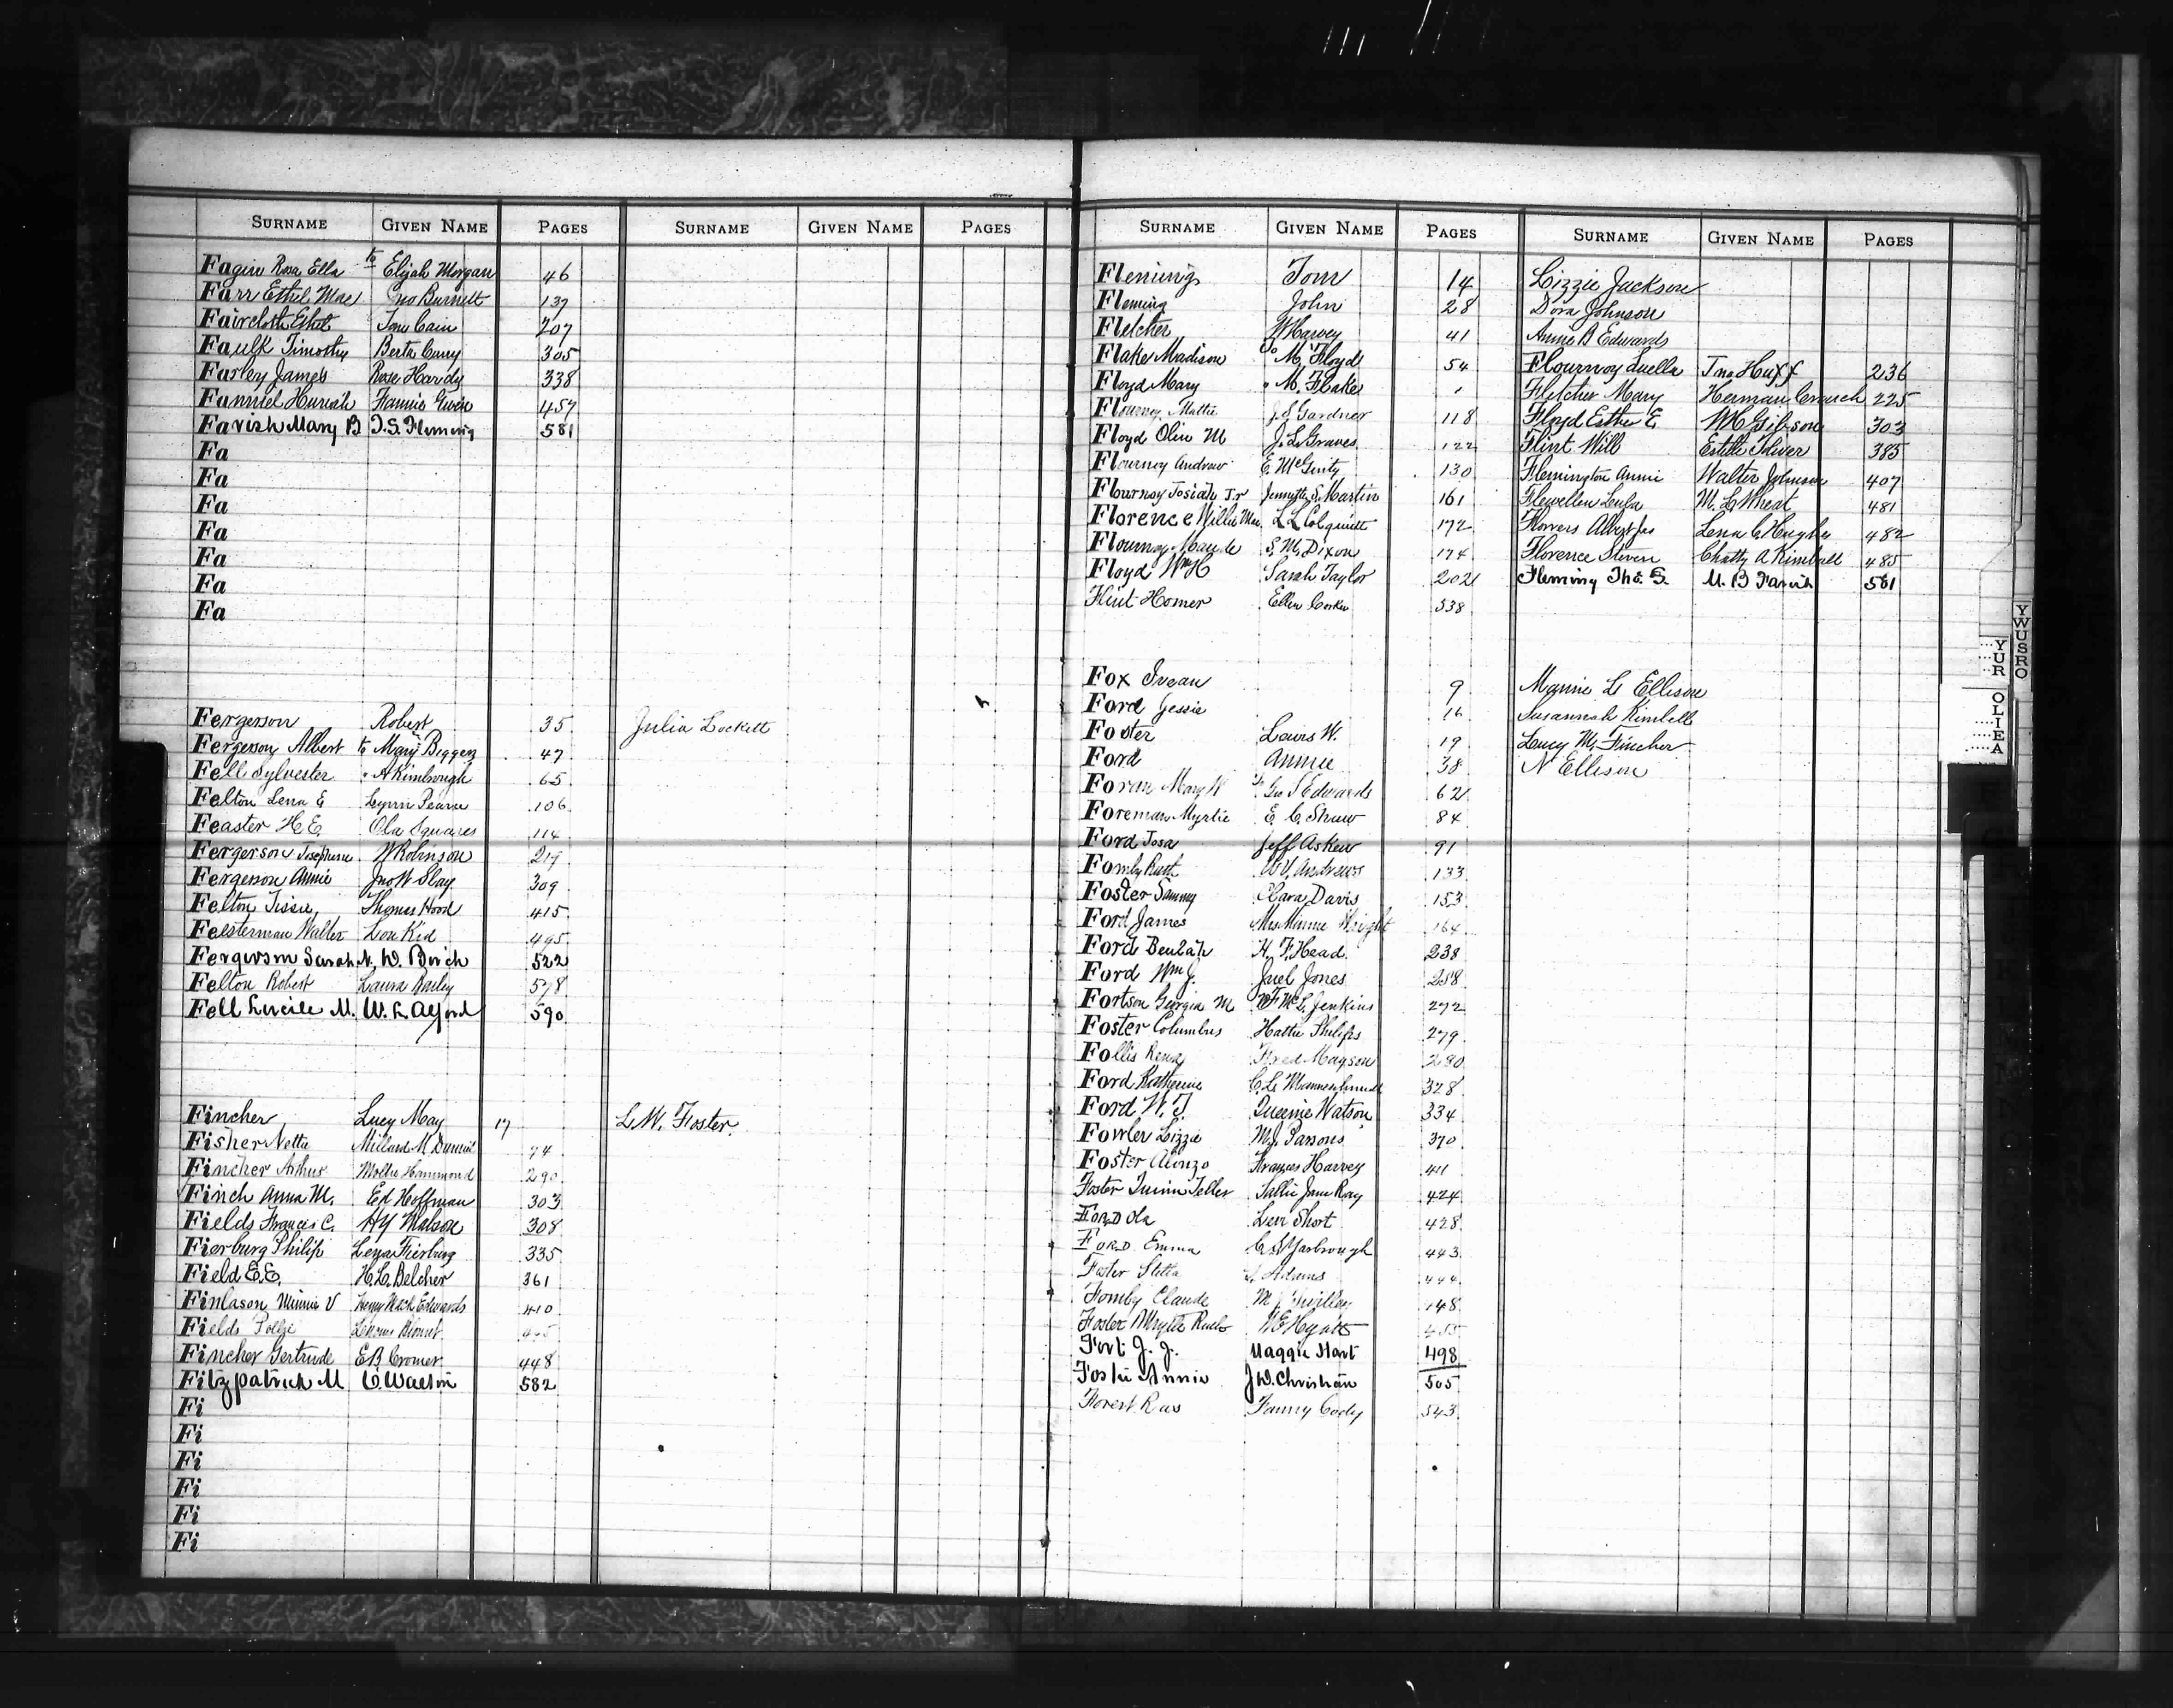 SURNAME GIVEN NAME PAGES SURNAME GIVEN NAME PAGES
Fagin Rosa Ella to Elijah Morgan 46
Farr Ethel Mae Jno Burnett 137
Faircloth Ethel Tom Cain 207
Faulk Timothy Berta Curry 305
Farley James Rose Hardy 338
Fanniel Huriah Fannie Given 457
Farish Mary B T.S. Fleming 581
Fa
Fa
Fa
Fa
Fa
Fa
Fa
Fergerson Robert 35 Julia Lockett
Fergerson Albert to Mary Biggers 47
Fell Sylvester " A Kimbrough 65
Felton Lena E Lynn Pearce 106
Feaster H E. Ola Squares 114
Fergerson Josephine W Robinson 217
Fergerson Annie Jno W Slay 309
Felton Tissie, Thomas Hood 415
Felsterman Walter Lou Kid 495
Fergerson Sarah N. W. Birch 522
Felton Robert Laura Bailey 578
Fell Lucile M. W. L Alford 590
Fincher Lucy May 17 L.W. Foster
Fisher Netta Millard M Daniel 74
Fincher Arthur Mollie Hammond 290
Finch Anna M. Ed Hoffman 303
Fields Francis C. H Y Nelson 308
Fierburg Philip Lena Fierburg 335
Field E.E. H.L. Belcher 361
Finlason Minnie V Henry Mack Edwards 410
Fields
Fincher Gertrude E B Cromer 448
Fitzpatrick M O. Walton 582
Fi
Fi
Fi
Fi
Fi
Fi
SURNAME GIVEN NAME PAGES SURNAME GIVEN NAME PAGES
Fleming Tom 14 Lizzie Jackson
Fleming John 28 Dora Johnson
Fletcher W Harvey 41 Annie B Edwards
Flake Madison to M. Floyd 54 Flournoy Luella Jno Huff 236
Floyd Mary " M. Flake " Fletcher Mary Herman Crouch 225
Flournoy Mattie J.S. Gardner 118 Floyd Esther E W H Gibson 303
Floyd Olin M J. L. Graves 122 Flint Will Estelle 385
Flournoy Andrew E. McGinty 130 Flemington Annie Walter Johnson 407
Flournoy Josiah Jr Jennette S. Martin 161 Flewellen Leula M. L. Wheat 481
Florence Willie Mae L L Colquitt 172 Flowers Albert Jas Lena C Hughes 482
Flournoy Maude S. M. Dixon 174 Florence Steven Chatty A Kimball 485
Floyd Wm H Sarah Taylor 202 Fleming Tho. S. M. B Farish 581
Flint Homer Ellen 538
Fox 9 Mamie L Ellison
Ford Jessie 16 Susannah Kimbell
Foster Lewis W. 19 Lucy M. Fincher
Ford Annie 38 N Ellison
Foran Mary W to Geo S Edwards 62
Foreman Myrtie E. C. Shaw 84
Ford Josa Jeff Askew 91
Fomby Ruth W. Andrews 133
Foster Sammy Clara Davis 153
Ford James Mrs Minnie Wright 164
Ford Beulah H. F. Head 238
Ford Wm J. Jael Jones 258
Fortson Georgia M W F McL Jenkins 272
Foster Columbus Hattie Philips 279
Follis Rena Fred Magson 280
Ford Katherine C. L. 328
Ford W. T. Queenie Watson 334
Fowler Lizzie M.J. Parsons 370
Foster Alonzo Frances Harvey 411
Foster Sallie Jane Ray 424
Ford Ola Len Short 428
Ford Emma C. S Yarbrough 443
Foster Stella Adams 444
Fomby Claude M J 148
Foster Myrtle Ruth W E Hyatt 455
Fort J. J. Maggie Hart 498
Foster Annie J W. Christian 505
Forest Ras Fanny Cody 543
YWUSRO
YUR
OLIEA